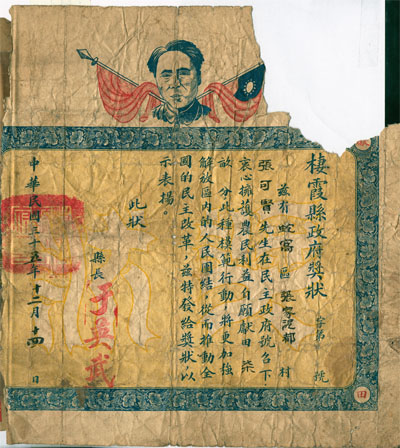 棲霞縣政府獎狀 字第 號
茲有 蛇窩 區 張家泥都 村
張可賢先生在民主政府號召下
衷心擁護農民利益自願獻田 柒
畝 分此種模範行動,將更加強
解放區内的人民團結,從而推動全
國的民主改革,茲特發給獎狀以
示表揚。
此狀
縣長 于 武
中華民國三十五年十二月十四日
田